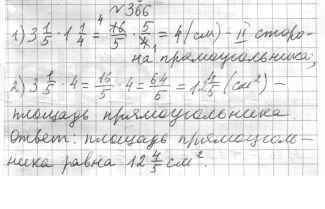 №366
1) 3 1/5 · 1 1/4 = 16/5 · 5/4 = 4 (см) - II сторо-
на прямоугольника;
2) 3 1/5 · 4 = 16/5 · 4 = 64/5 = 12 4/5 (см²) -
площадь прямоугольника
Ответ: площадь прямоуголь-
ника равна 12 4/5 см².